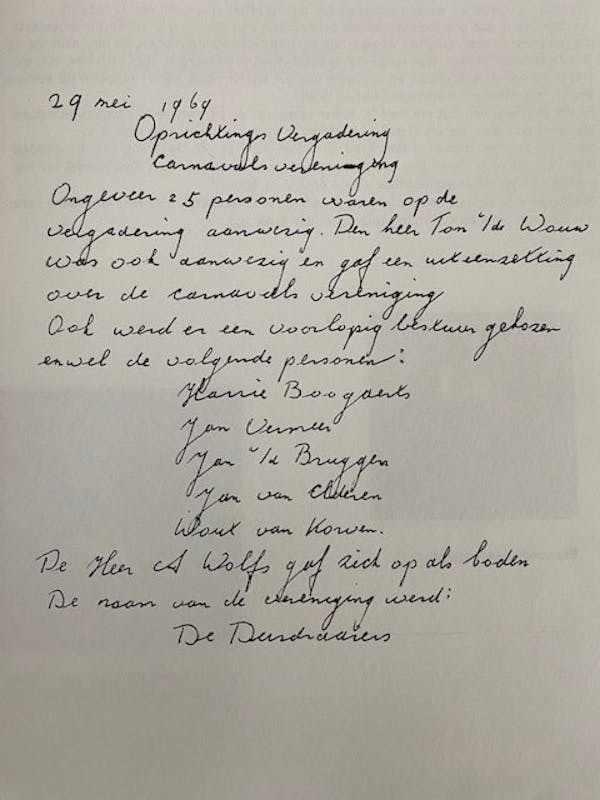 29 mei 1969
Oprichtings Vergadering
Carnavals vereniging
Ongeveer 25 personen waren op de
vergadering aanwezig. Den heer Ton v/d Wouw
was ook aanwezig en gaf een uiteenzetting
over de carnavals vereniging
Ook werd er een voorlopig bestuur gekozen
enwel de volgende personen:
Harrie Boogaerts
Jan Vermeer
Jan v/d Bruggen
Jan van Elderen
Wout van Korven.
De Heer A Wolfs gaf zich op als boden
De naam van de vereniging werd:
De Deurdraaiers